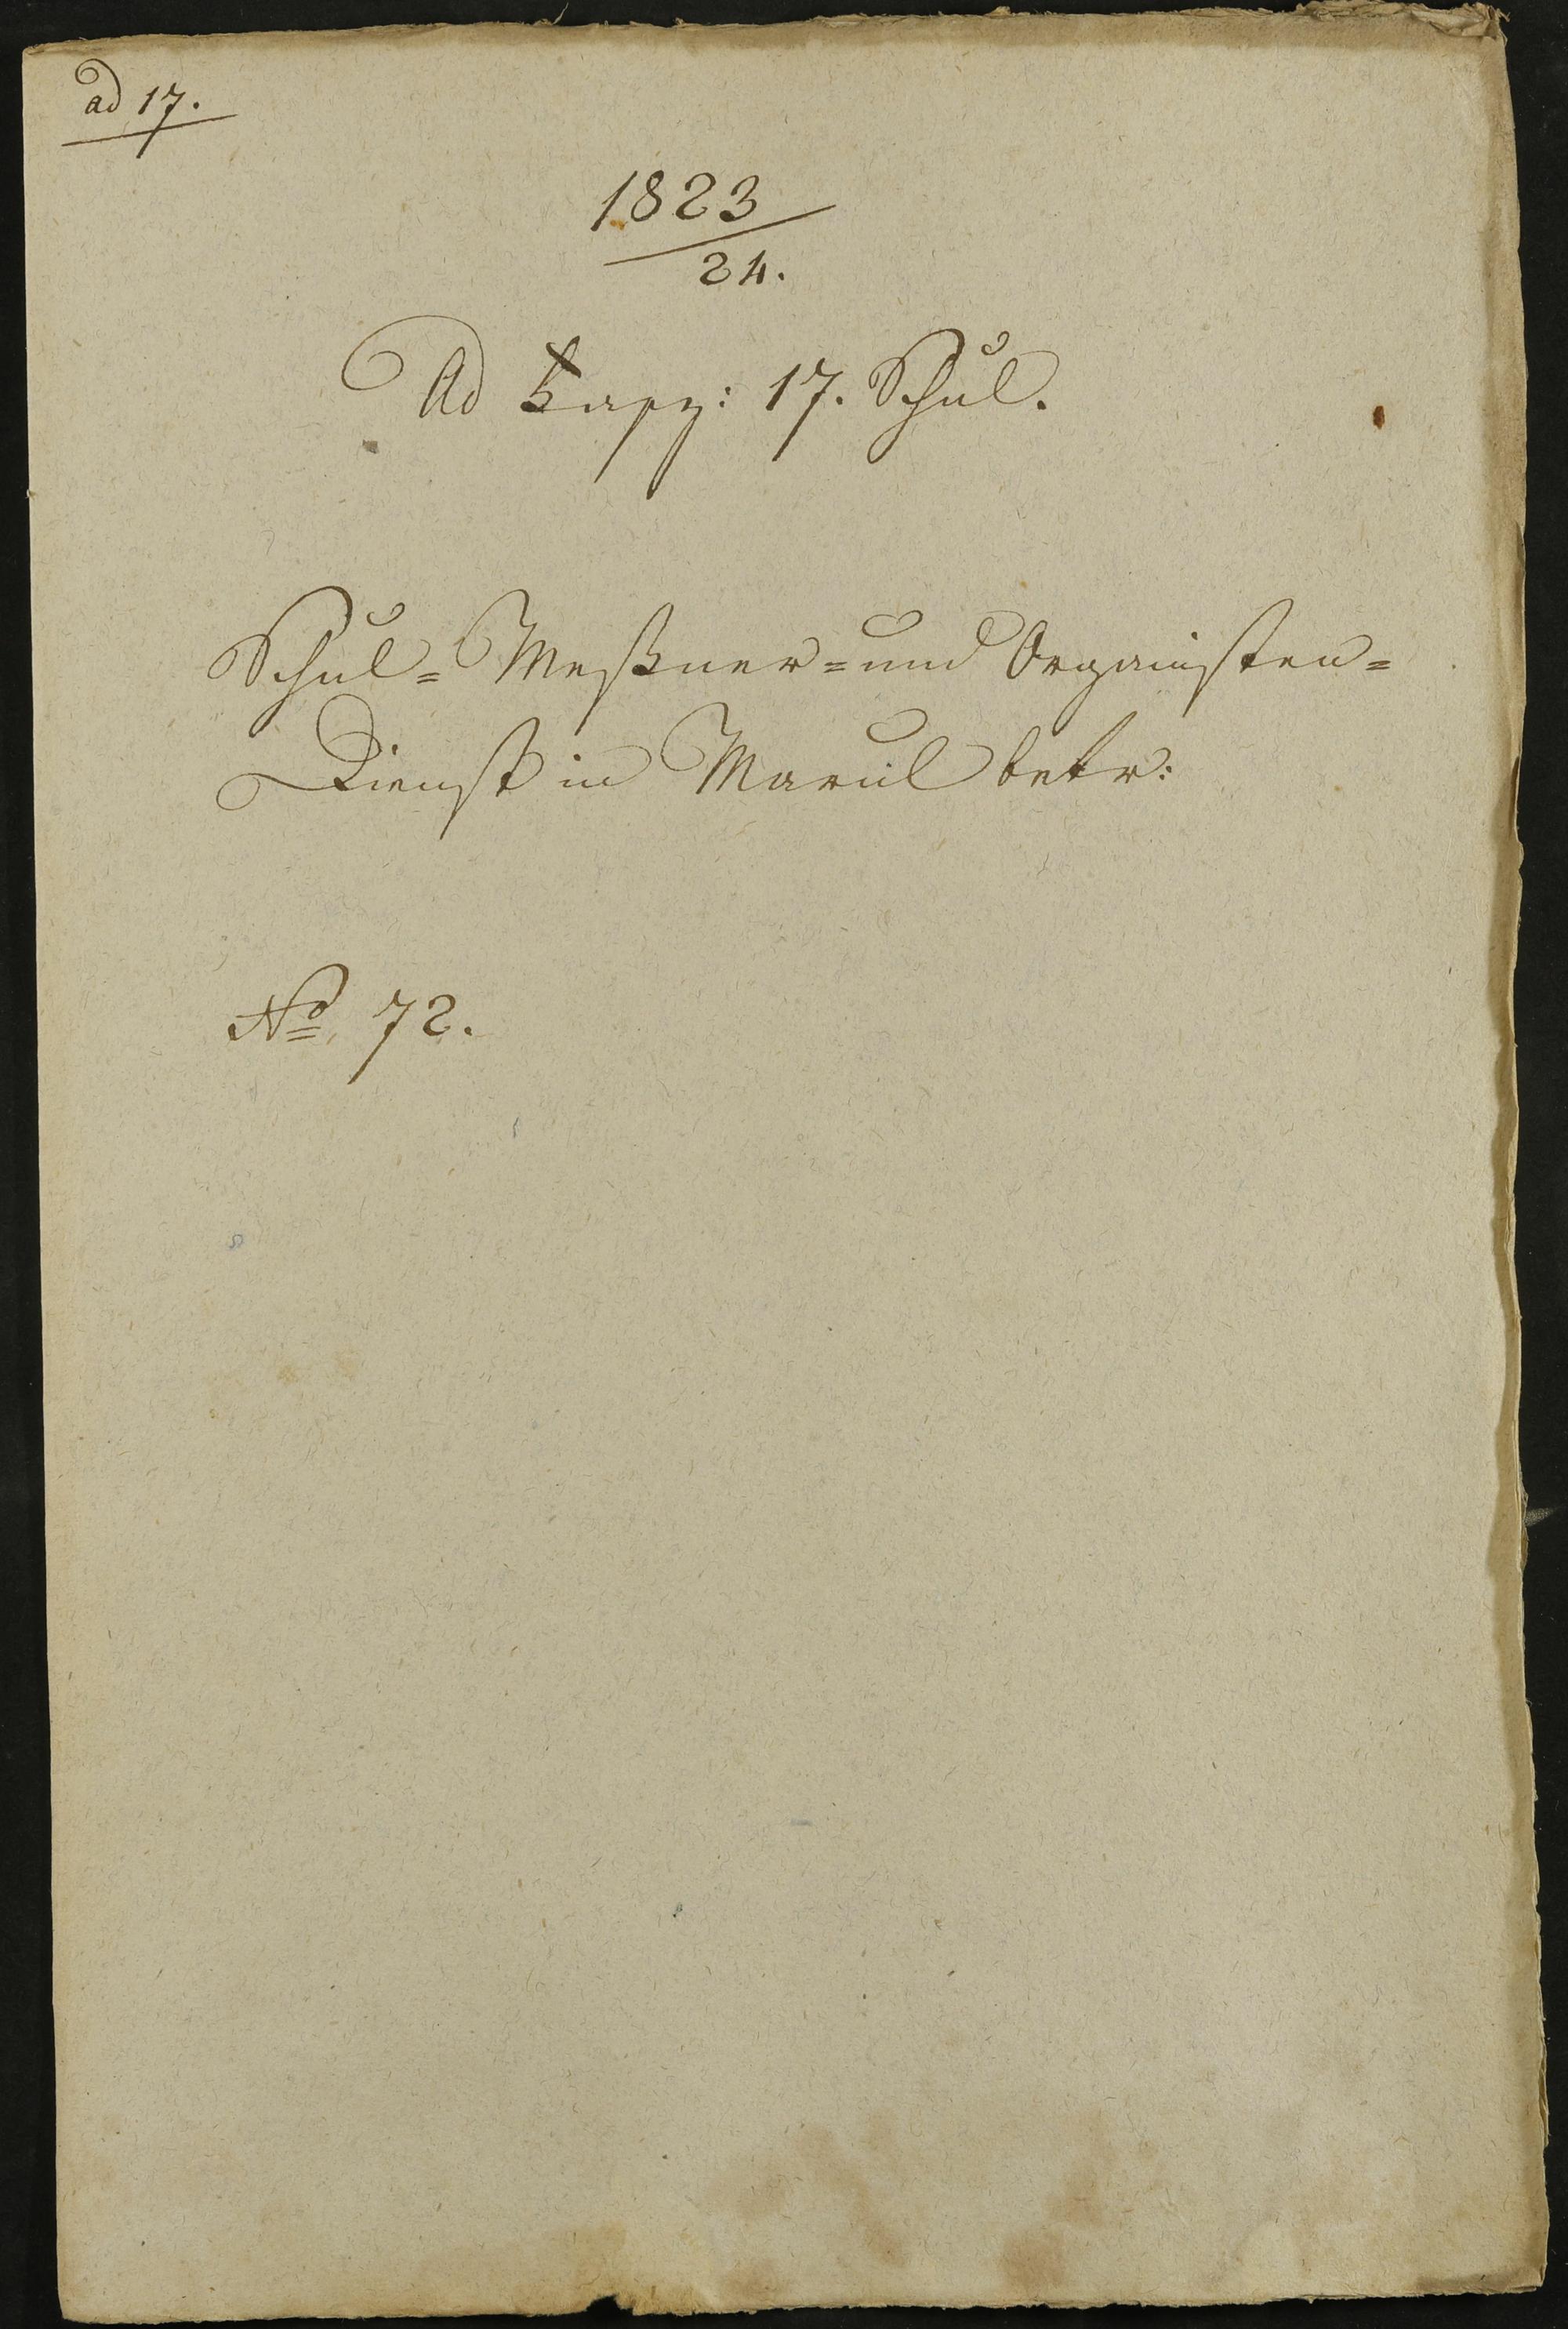 ad 17.
1823
24.
Ad 17. Schul.
Schul= Meßner=und Organisten=
Dienst in Marul betr:
No 72.